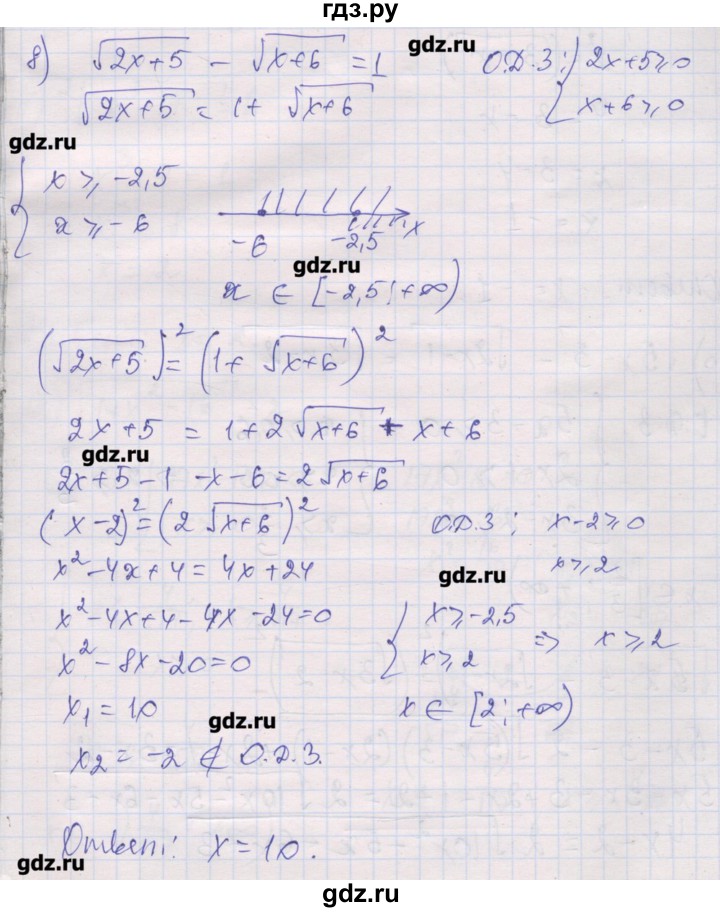 гдз.ру
8) √(2x+5) - √(x+6) = 1 О.Д.З: { 2x+5 ⩾ 0
√(2x+5) = 1 + √(x+6) x+6 ⩾ 0
gdz.ru
gdz.ru
{ x ⩾ -2,5
x ⩾ -6
-6 -2,5 x
gdz.ru
x ∈ [-2,5; +∞)
(√(2x+5))² = (1 + √(x+6))²
2x+5 = 1+2√(x+6) + x+6
gdz.ru
2x+5-1-x-6 = 2√(x+6)
(x-2)² = (2√(x+6))² О.Д.З: x-2 ⩾ 0
x²-4x+4 = 4x+24 x ⩾ 2
gdz.ru
x²-4x+4-4x-24=0 { x ⩾ -2,5
x²-8x-20=0 x ⩾ 2 ⇒ x ⩾ 2
x₁ = 10 x ∈ [2; +∞)
gdz.ru
x₂ = -2 ∉ О.Д.З.
Ответ: x = 10.
gdz.ru
gdz.ru